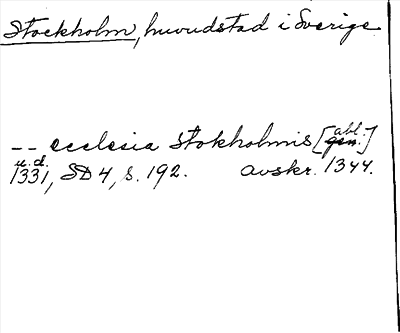 Stockholm, huvudstad i Sverige
-- ecclesia Stokholmis [abl.]
u.d.
1331, SD 4, s. 192. avskr. 1344.